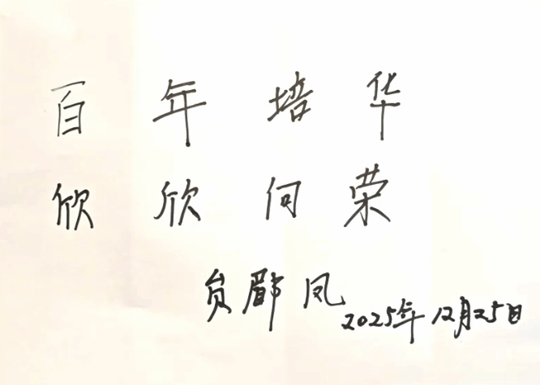 百年培华
欣欣向荣
贠鄘凤
2025年12月25日